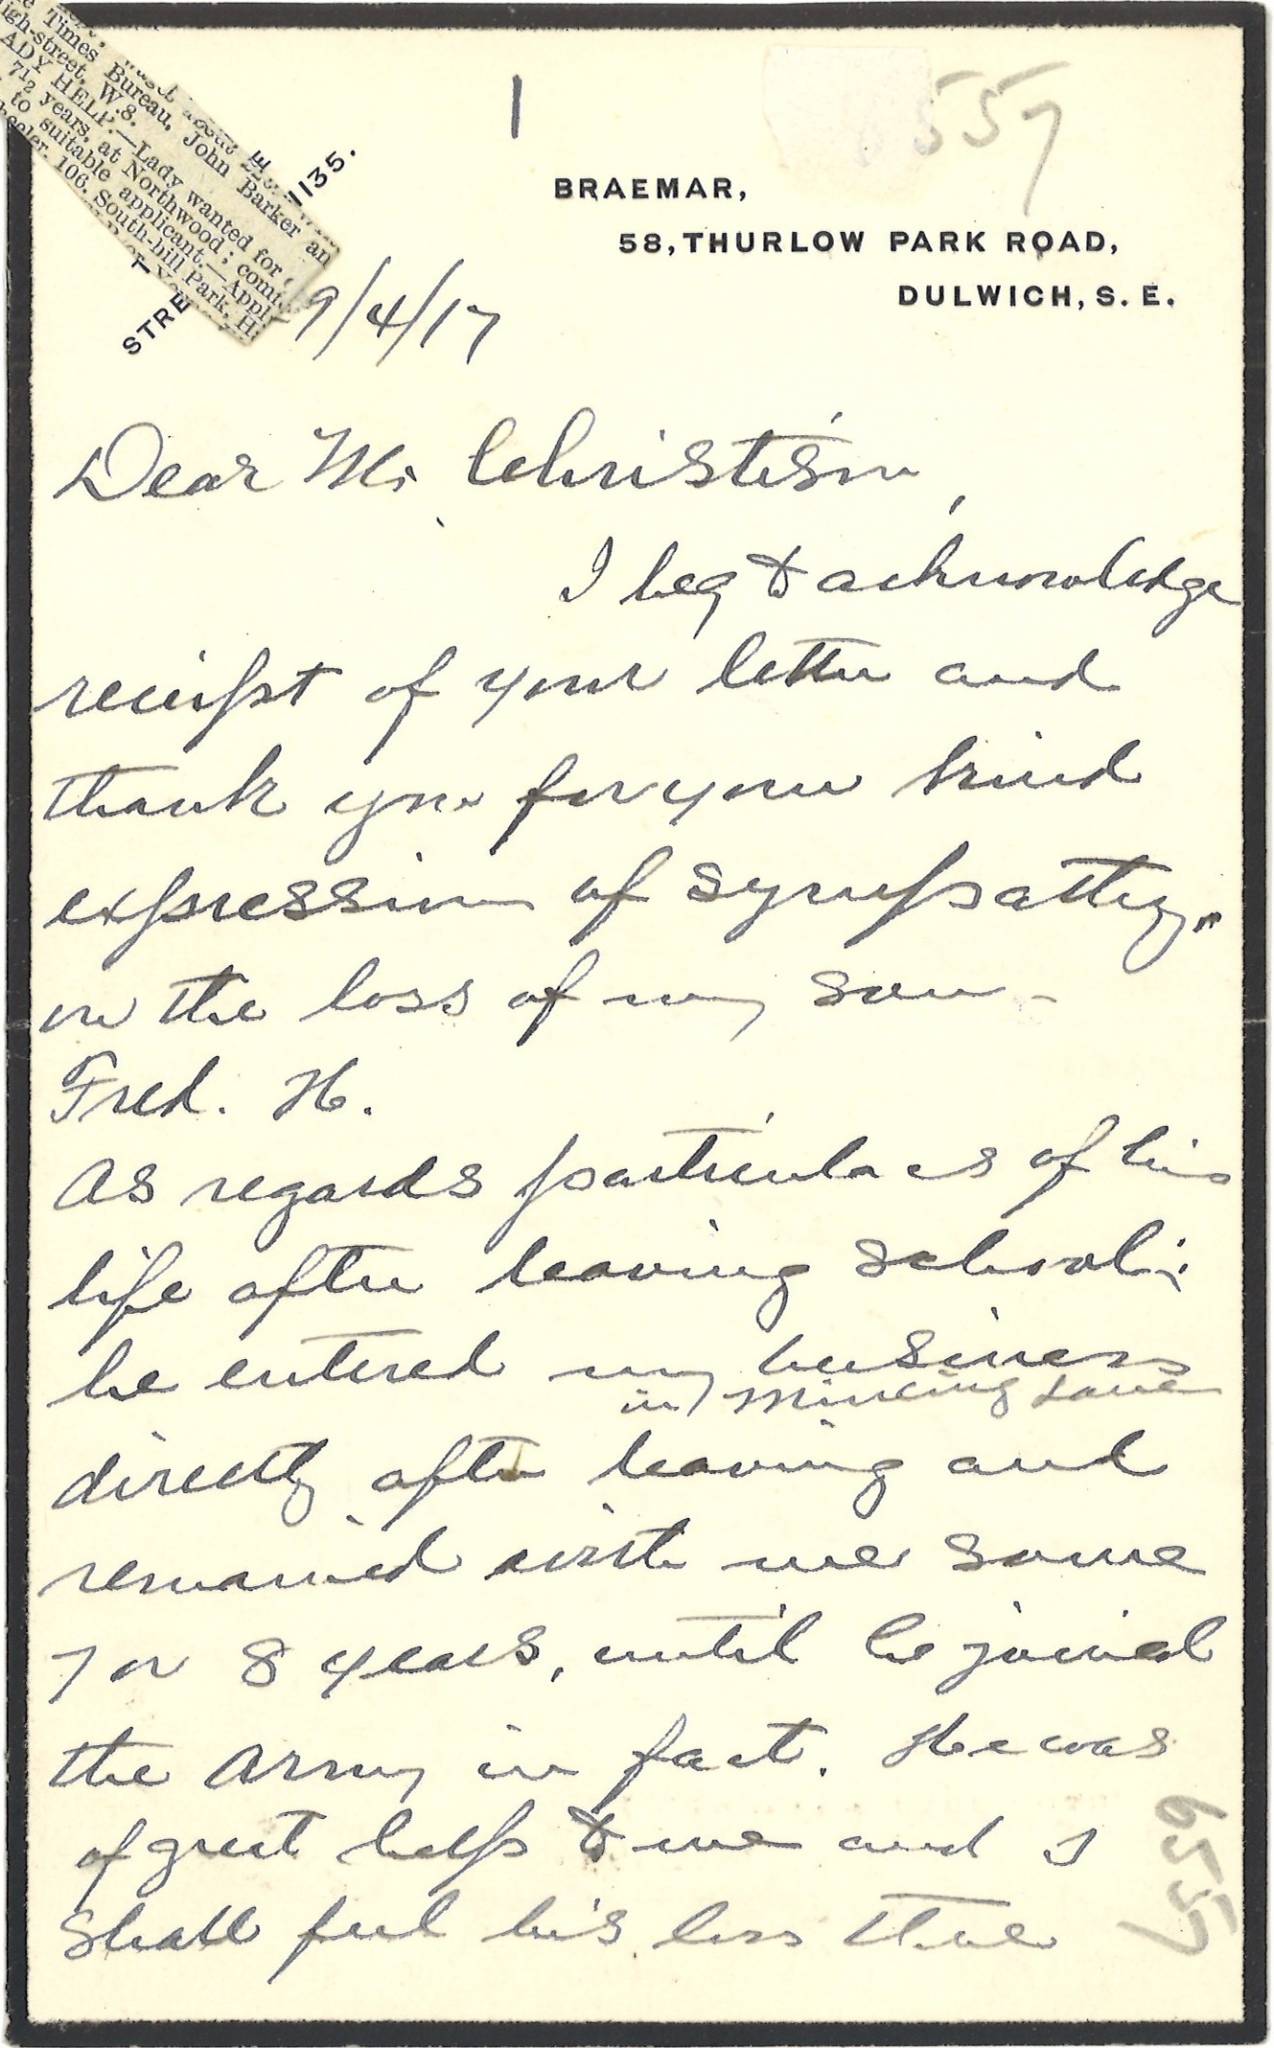 e Times Bureau, John Barker an
igh-street, W.8.
ADY HELP.—Lady wanted for
7½ years, at Northwood; comf
to suitable applicant.—Appl
eeler, 106, South-hill Park, H
1135.
STRE
1
6557
BRAEMAR,
58, THURLOW PARK ROAD,
DULWICH, S. E.
9/4/17
Dear Mr Christison,
I beg to acknowledge
receipt of your letter and
thank you for your kind
expression of sympathy
on the loss of my son -
Fred. H.
As regards particulars of his
life after leaving school:
he entered my business
in Mincing Lane
directly after leaving and
remained with me some
7 or 8 years, until he joined
the Army in fact. He was
of great help to me and I
shall feel his loss there
6557